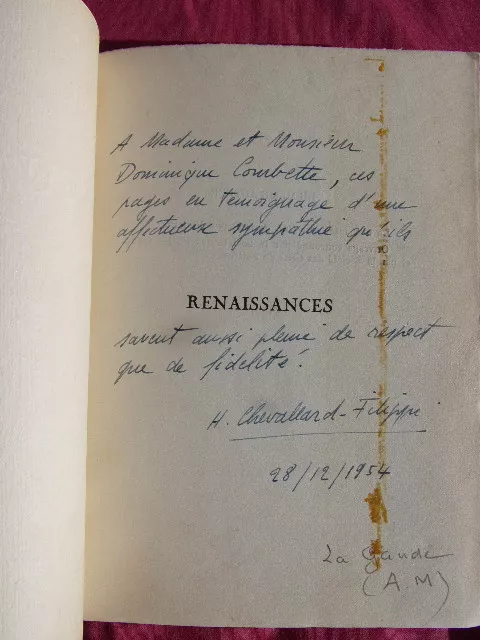 A Madame et Monsieur
Dominique Courbette, ces
pages en témoignage d'une
affectueuse sympathie qu'ils
RENAISSANCES
savent aussi pleine de respect
que de fidélité.
H. Chevallard-Filippi
28/12/1954
La Gaude
(A.M)